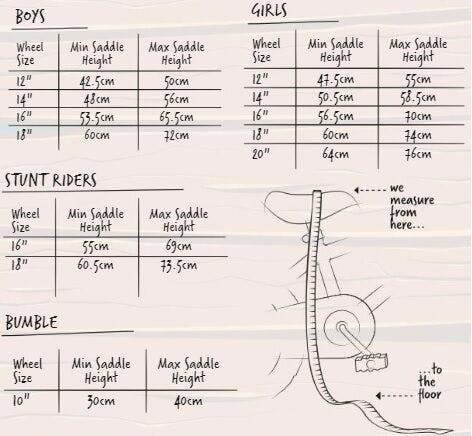 BOYS
Wheel Size Min Saddle Height Max Saddle Height
12" 42.5cm 50cm
14" 48cm 56cm
16" 53.5cm 65.5cm
18" 60cm 72cm
GIRLS
Wheel Size Min Saddle Height Max Saddle Height
12" 47.5cm 55cm
14" 50.5cm 58.5cm
16" 56.5cm 70cm
18" 60cm 74cm
20" 64cm 76cm
STUNT RIDERS
Wheel Size Min Saddle Height Max Saddle Height
16" 55cm 69cm
18" 60.5cm 73.5cm
BUMBLE
Wheel Size Min Saddle Height Max Saddle Height
10" 30cm 40cm
we
measure
from
here...
...to
the
floor